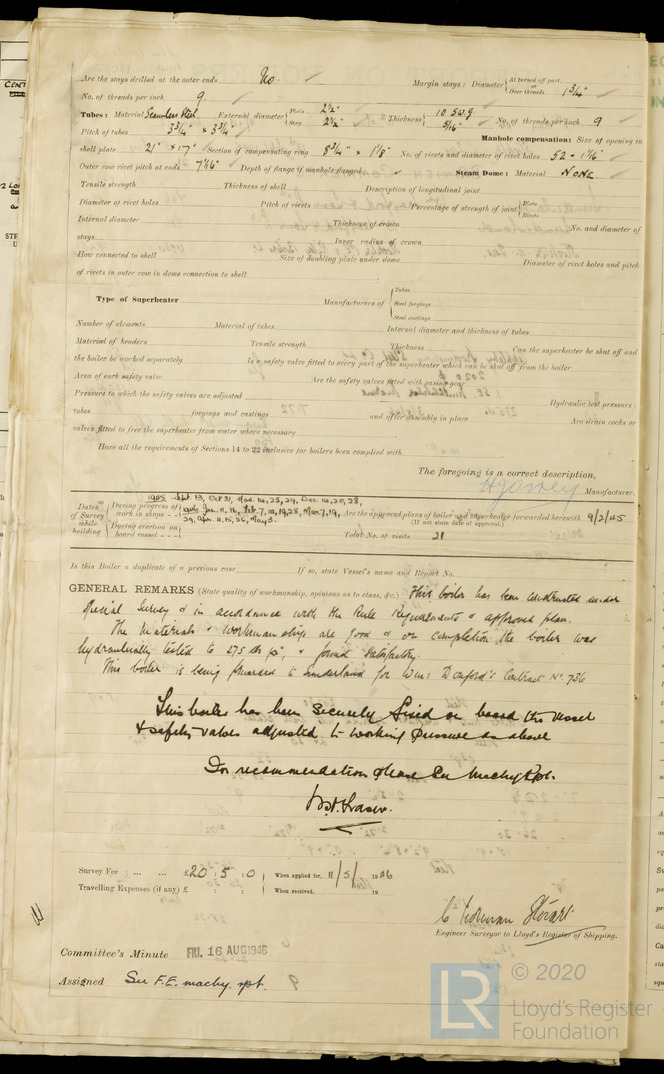 Are the stays drilled at the outer ends No. Margin stays: Diameter { At turned off part, or Over threads 1 3/4"
No. of threads per inch 9.
Tubes: Material Seamless Steel External diameter { Plain 2 1/2" Stay 2 1/2" Thickness { 10 SWG 5/16" No. of threads per inch 9
Pitch of tubes 3 3/4" x 3 3/4" Manhole compensation: Size of opening in
shell plate 21" x 17" Section of compensating ring 8 3/4" x 1 1/8" No. of rivets and diameter of rivet holes 52 - 1 1/16"
Outer row rivet pitch at ends 7 1/16" Depth of flange if manhole flanged Steam Dome: Material NONE
Tensile strength Thickness of shell Description of longitudinal joint
Diameter of rivet holes Pitch of rivets Percentage of strength of joint { Plate Rivets
Internal diameter Thickness of crown No. and diameter of
stays Inner radius of crown
How connected to shell Size of doubling plate under dome Diameter of rivet holes and pitch
of rivets in outer row in dome connection to shell
Type of Superheater Manufacturers of { Tubes Steel forgings Steel castings
Number of elements Material of tubes Internal diameter and thickness of tubes
Material of headers Tensile strength Thickness Can the superheater be shut off and
the boiler be worked separately Is a safety valve fitted to every part of the superheater which can be shut off from the boiler
Area of each safety valve Are the safety valves fitted with easing gear
Pressure to which the safety valves are adjusted Hydraulic test pressure:
tubes forgings and castings and after assembly in place Are drain cocks or
valves fitted to free the superheater from water where necessary
Have all the requirements of Sections 14 to 22 inclusive for boilers been complied with
The foregoing is a correct description,
Manufacturer.
Dates of Survey while building { During progress of work in shops - - 1945 Sept. 13, Oct 31, Nov. 14, 23, 29, Dec. 14, 20, 28, 1946 Jan. 11, 16, Feb. 7, 12, 19, 28, Mar. 7, 19, 29, Apr. 4, 15, 26, May 3.
During erection on board vessel - - -
Are the approved plans of boiler and superheater forwarded herewith 9/2/45
(If not state date of approval.)
Total No. of visits 21
Is this Boiler a duplicate of a previous case If so, state Vessel's name and Report No.
GENERAL REMARKS (State quality of workmanship, opinions as to class, &c.) This boiler has been constructed under
Special Survey & in accordance with the Rule Requirements & approved plan.
The Materials & workmanship are good & on completion the boiler was
hydraulically tested to 275 lbs □", & found satisfactory.
This boiler is being forwarded to Sunderland for Wm: Doxford's Contract No. 736
This boiler has been securely fixed on board the vessel
& safety valves adjusted to working pressure as above
For recommendation please see Machy Rpt.
Fraser.
Survey Fee ... ... £20 : 5 : 0 When applied for, 11/5/1946
Travelling Expenses (if any) £ : : When received, 19
Engineer Surveyor to Lloyd's Register of Shipping.
Committee's Minute FRI. 16 AUG 1946
Assigned See F.E. machy. rpt.
LR © 2020
Lloyd's Register
Foundation